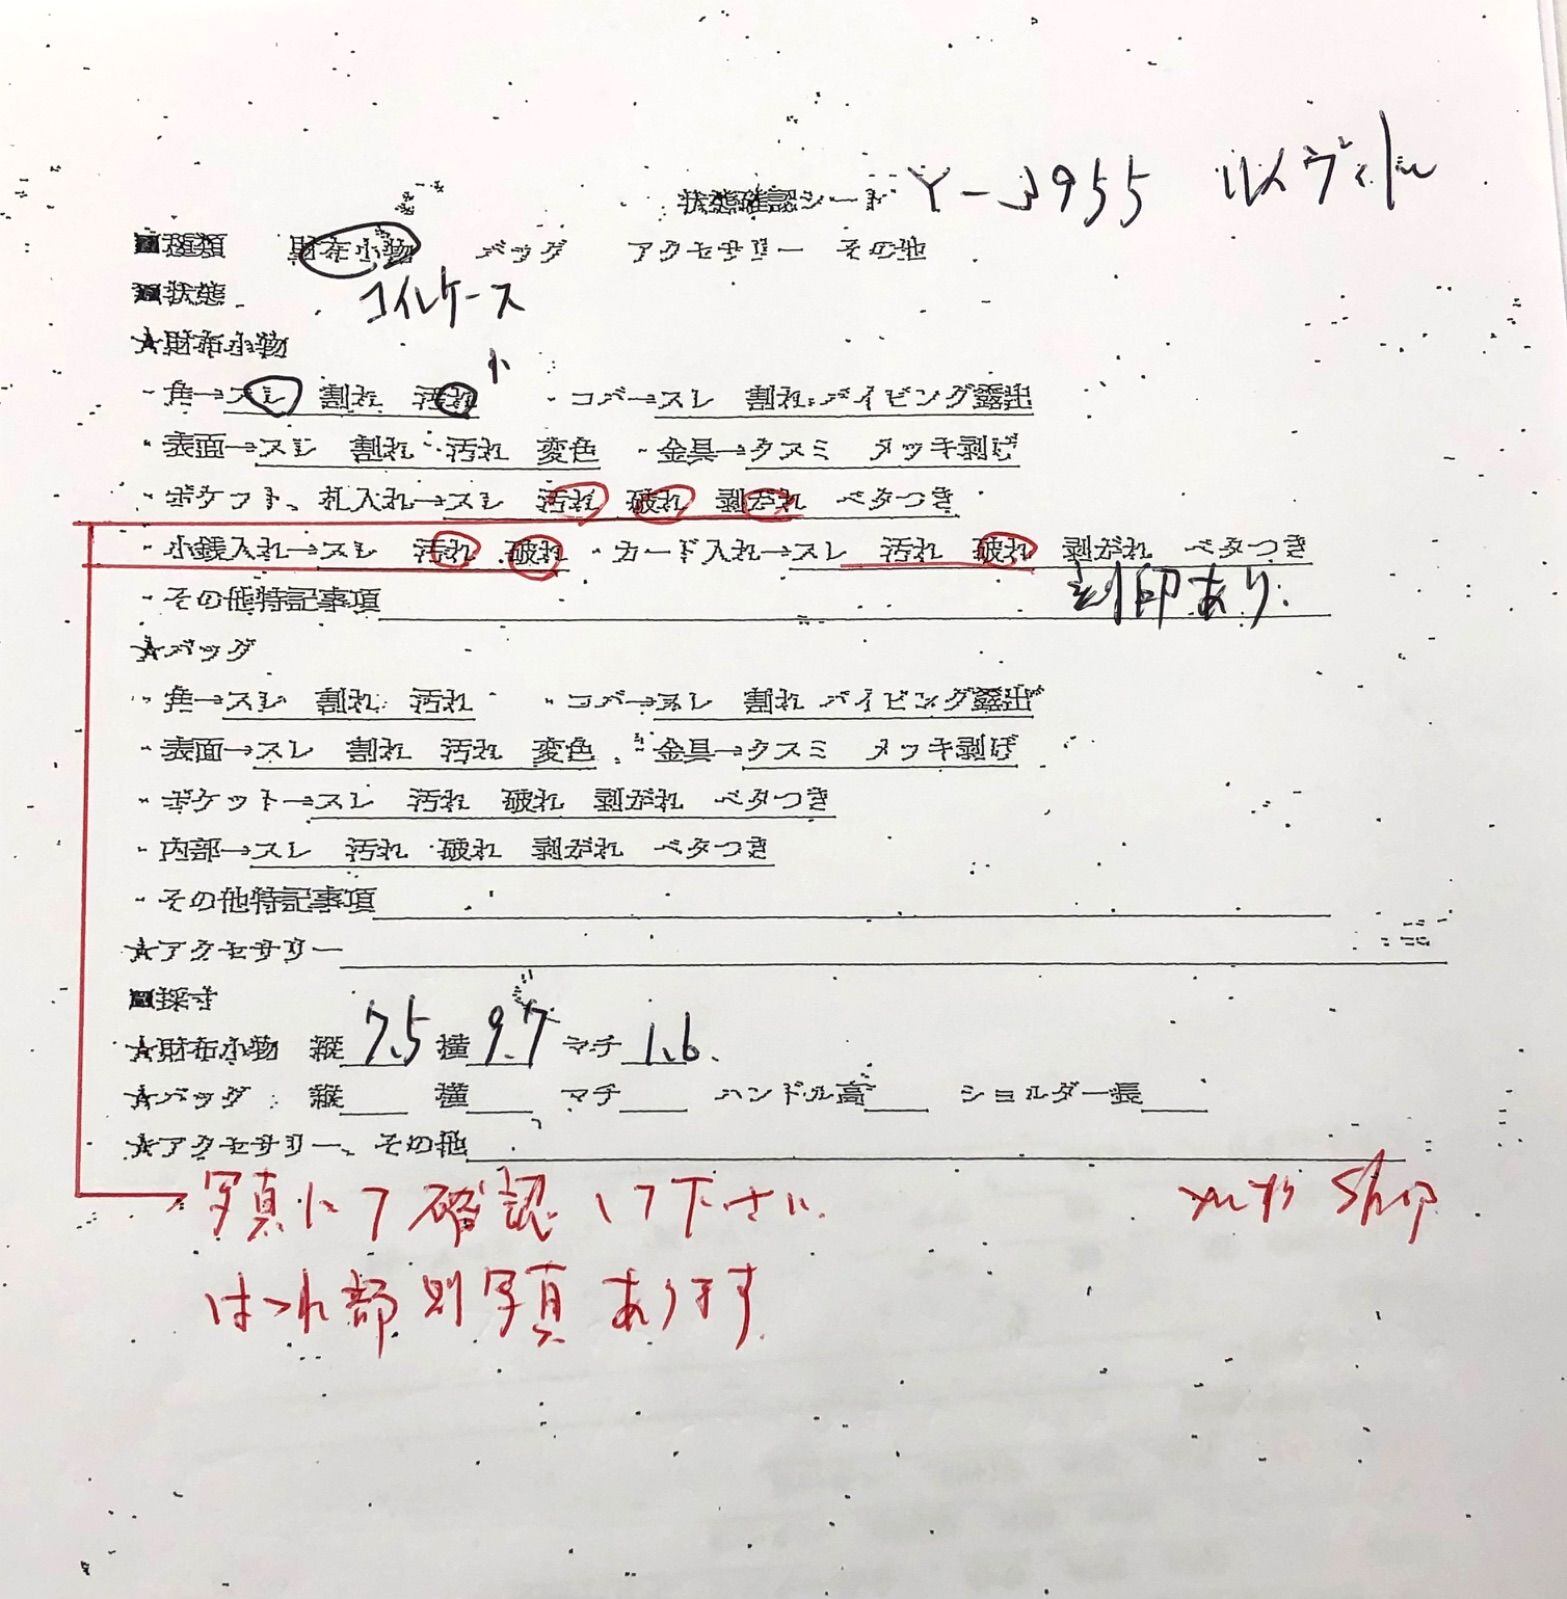 状態確認シート Y-3955 ルイヴィトン
■種類 財布小物 バッグ アクセサリー その他
■状態 コインケース
★財布小物
・角→スレ 割れ 汚れ 小 ・コバ→スレ 割れ パイピング露出
・表面→スレ 割れ 汚れ 変色 ・金具→クスミ メッキ剥げ
・ポケット、札入れ→スレ 汚れ 破れ 剥がれ ベタつき
・小銭入れ→スレ 汚れ 破れ ・カード入れ→スレ 汚れ 破れ 剥がれ ベタつき
・その他特記事項 刻印あり.
★バッグ
・角→スレ 割れ 汚れ ・コバ→スレ 割れ パイピング露出
・表面→スレ 割れ 汚れ 変色 ・金具→クスミ メッキ剥げ
・ポケット→スレ 汚れ 破れ 剥がれ ベタつき
・内部→スレ 汚れ 破れ 剥がれ ベタつき
・その他特記事項
★アクセサリー
■採寸
★財布小物 縦 7.5 横 9.7 マチ 1.6.
★バッグ 縦 横 マチ ハンドル高 ショルダー長
★アクセサリー、その他
写真にて確認して下さい. shop
ほつれ部別写真あります.